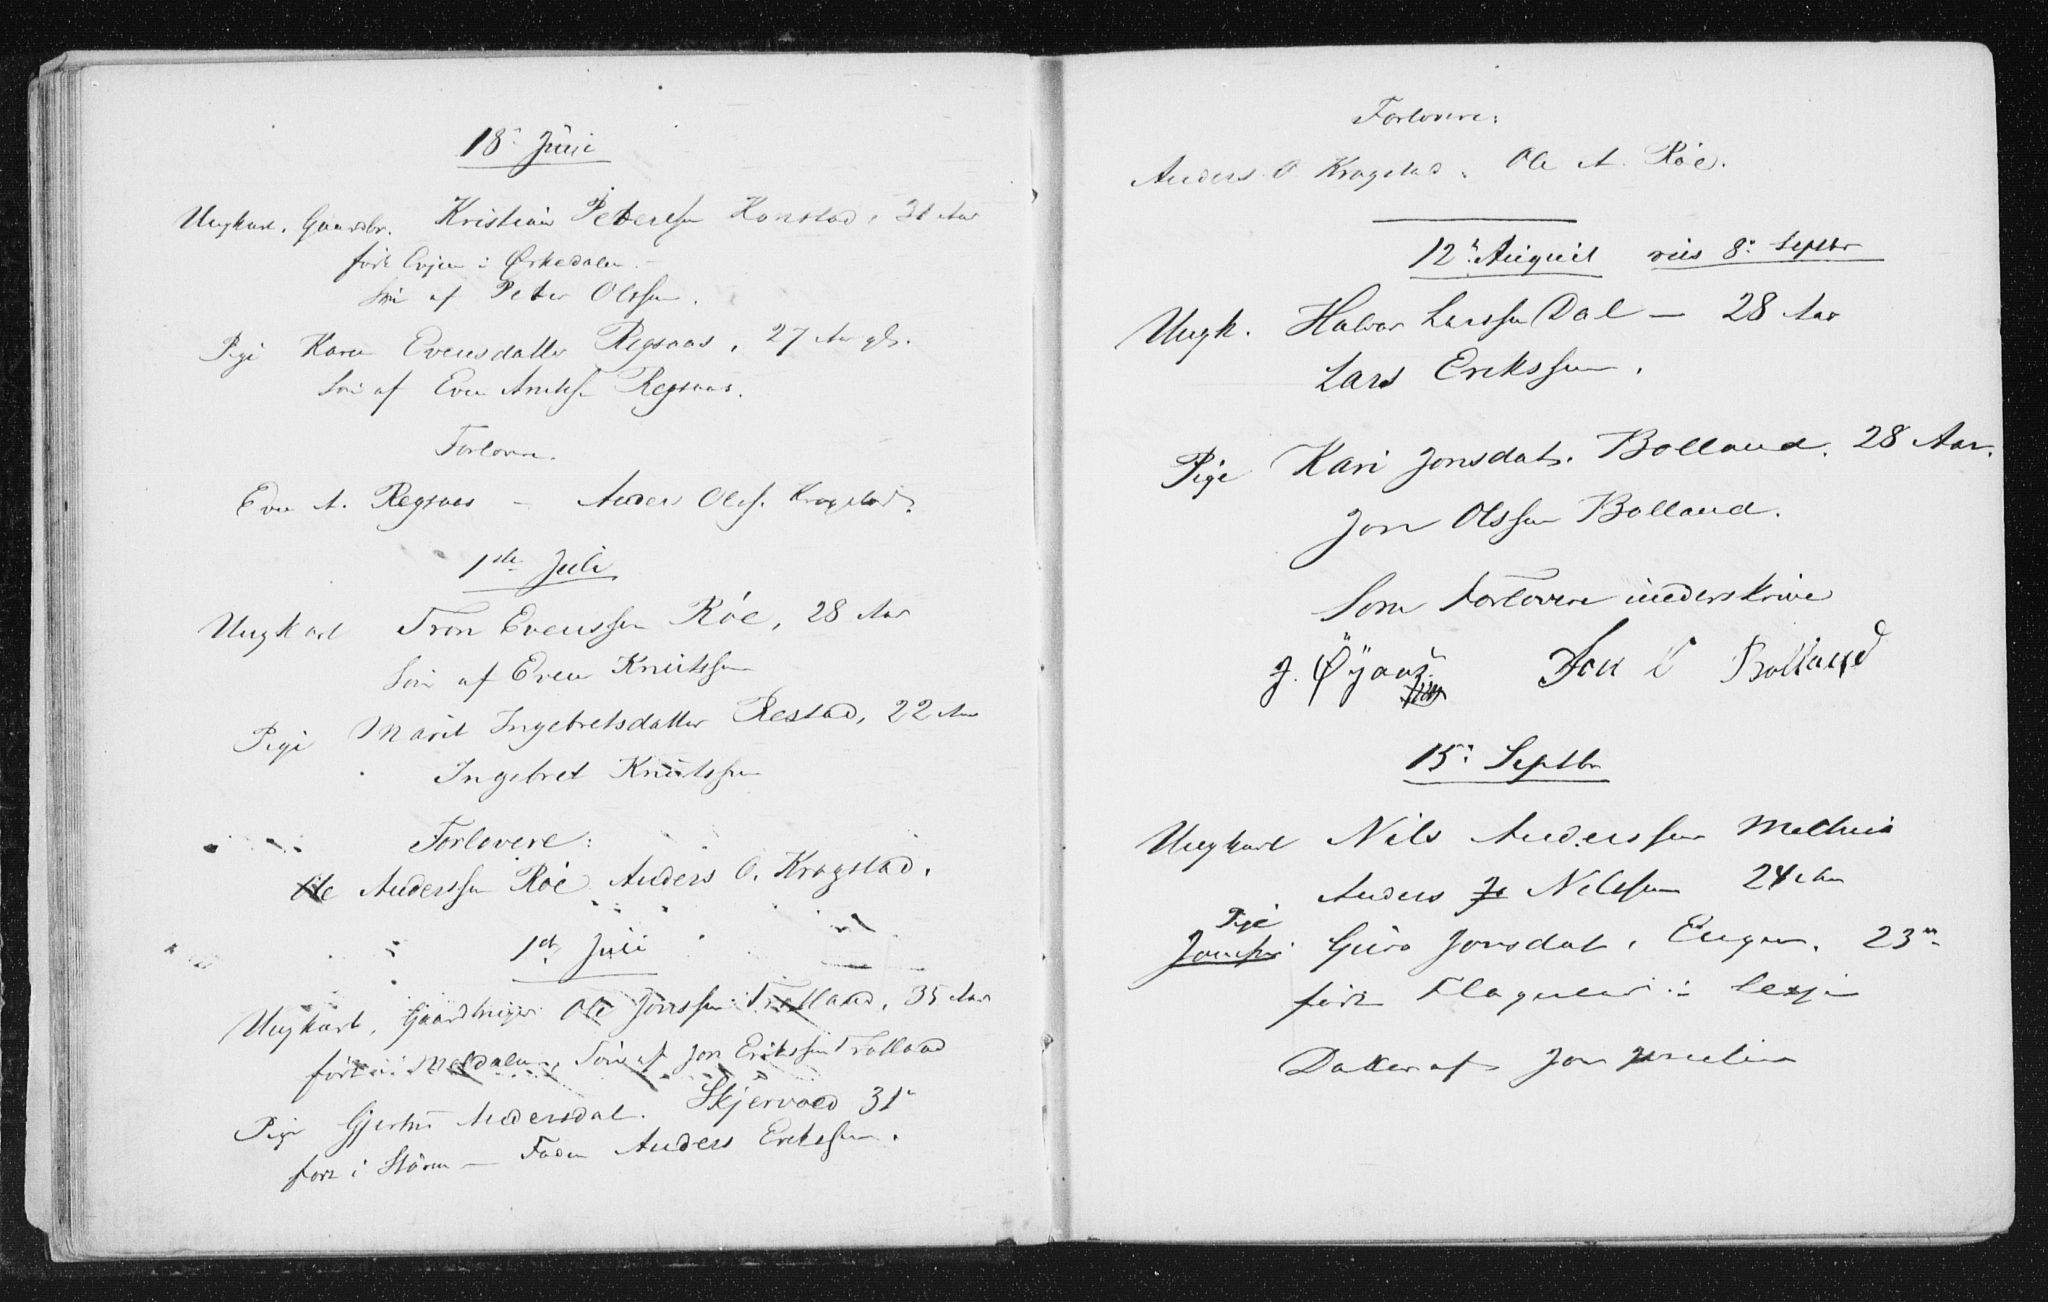 18: Juni
Ungkarl. Gaardbr. Kristian Petersen Konstad, 31 Aar
født Evjen i Ørkedalen
Søn af Peter Olssen.
Pige Karen Evensdatter Regsaas, 27 Aar gl.
Søn af Even Arntss Regsaas.
Forlovere.
Even A. Regsaas – Anders Olss. Kragstad.
1ste Juli
Ungkarl Tron Evenssen Røe, 28 Aar
Søn af Even Knutssen
Pige Marit Ingebretsdatter Restad, 22 Aar
Ingebret Knutssen
Forlovere:
Ole Anderssen Røe Anders O. Kragstad.
1st Juli
Ungkarl, Gaardbruger Ole Jonssen Tratland, 35 Aar
født i Meldalen, Søn af Jon Erikssen Tratland
Pige Gjertru Andersdat. Skjervold 31
født i Støren – Fader Anders Erikssen.
Forlovere:
Anders O Kragstad. Ole A. Røe.
12: August viis 8: Septbr
Ungk. Halvor Larssen Dal – 28 Aar
Lars Erikssen.
Pige Kari Jonsdat. Bolland. 28 Aar.
Jon Olssen Bolland.
Som Forlovere underskrive
J. Øyaas. Jon O Bolland
15: Septbr
Ungkarl Nils Anderssen Melhus
Anders Nilssen 24 Aar
Pige
Guro Jonsdat. Engen. 23
født i Lesje
Datter af Jon